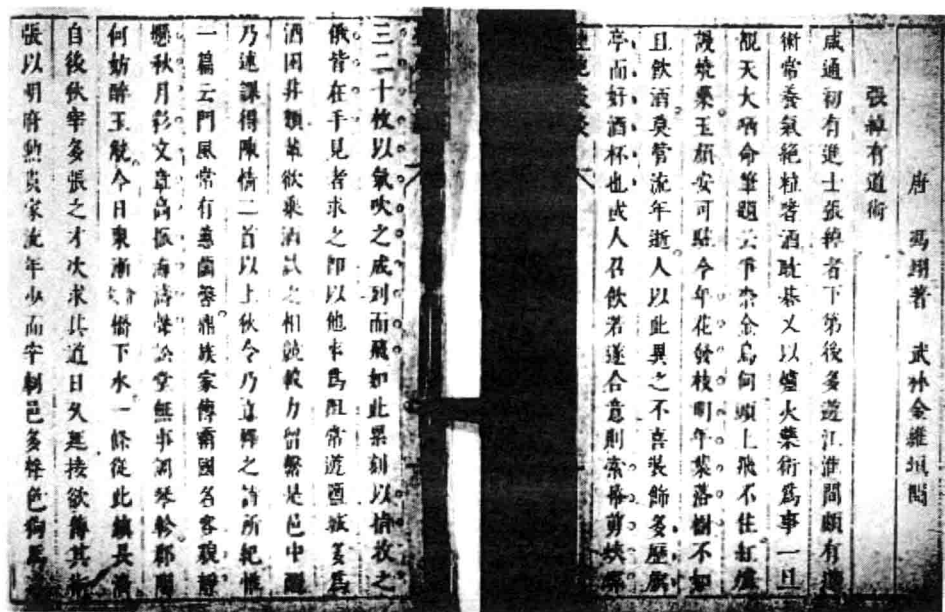 唐　馮翊著　武林金維垣閱
張綽有道術
咸通初有進士張綽者下第後多遊江淮間頗有道
術常養氣絕粒嗜酒耽棊又以爐火藥術爲事一旦
覩天大哂命筆題云爭奈金烏何頭上飛不住紅爐
謾燒藥玉顏安可駐今年花發枝明年葉落樹不如
且飲酒莫管流年逝人以此異之不喜裝飾多歷旗
亭而好酒杯也或人召飲若遂合意則索幅剪蛺蝶
三二十枚以氣吹之成列而飛如此累刻以指收之
俄皆在手見者求之即以他事爲阻常遊鹽城多爲
酒困非類輩欲乘酒試之相競較力留繫是邑中醒
乃述課得陳情二首以上狄令乃立釋之詩所紀惟
一篇云門風常有蕙蘭馨鼎族家傳霸國名容貌靜
懸秋月彩文章高振海濤聲訟堂無事調琴軫郡閣
何妨醉玉觥今日東漸橋下水一條從此鎮長清
自後狄宰多張之才次求其道日久延接欲傳其術
張以明府勲貴家流年少而宰劇邑多聲色狗馬之